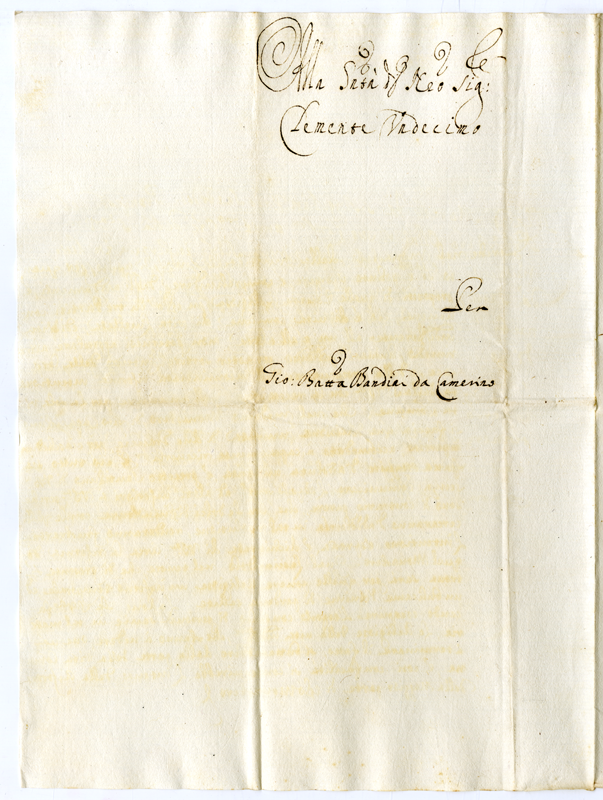 Alla Sntà di Nro Sigre
Clemente Undecimo
Per
Gio: Batta Bandini da Camerino